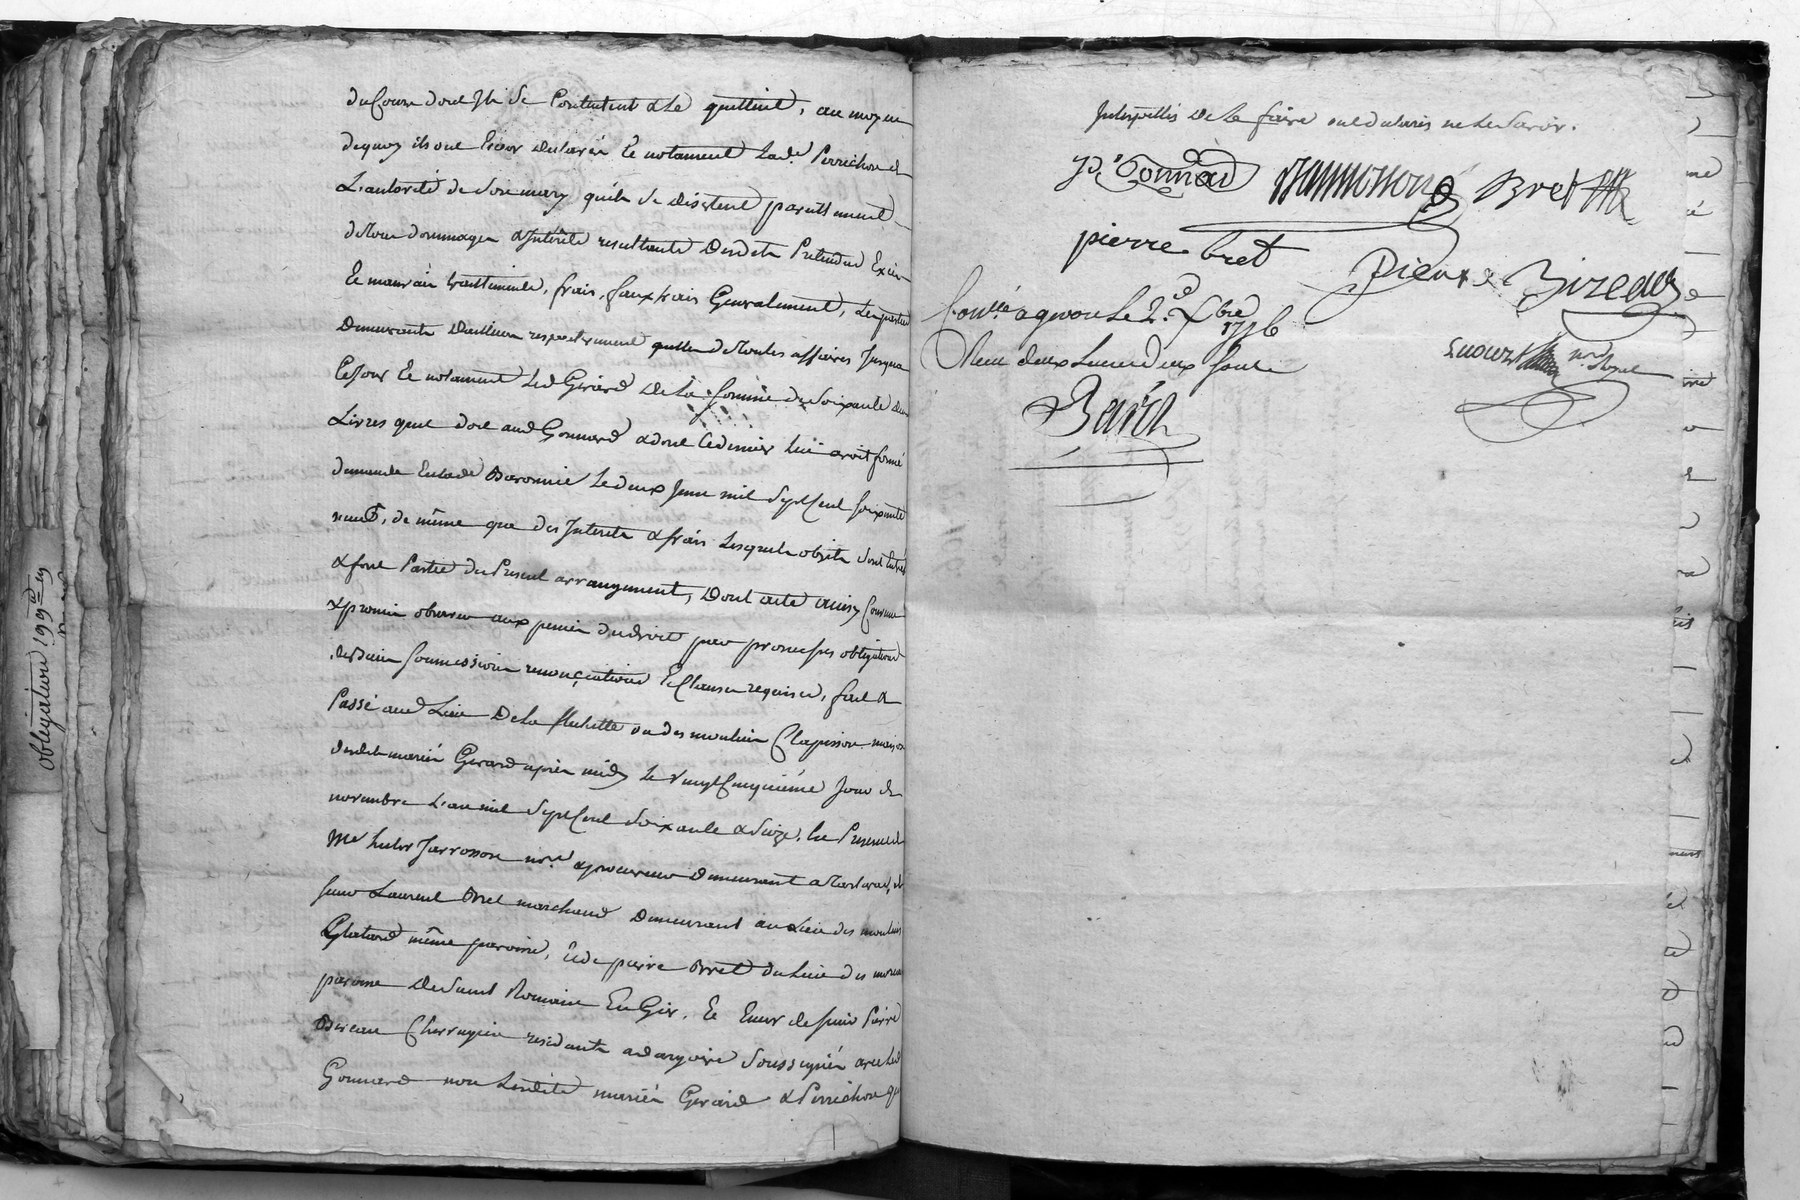 du Cour dont Ils Se Contentent & Le quittent, au moyen
dequoy ils ont Encor declarés Et notament Lad.e Perrichon de
L'autorité de Son mary qu'ils Se desistent pareillement
de tous dommages & Intérêts resultants Desdits Pretendus Excès
Et mauvais traittements, frais, faux frais Generalement, Les parties
Demeurants D'ailleurs respectivement quittes de toutes affaires Jusqua
Ce Jour Et notament Led Gerard De La Somme de Soixante deux
Livres que doit aud Gonnard & dont Ce dernier Lui avoit formé
demande En lad Baronnie Le deux Juin mil Sept Cent Soixante
neuf, de même que des Interets & frais Lesquels objets Sont Entrés
& font Partie du Present arrangement, Dont acte Ainsy Convenu
& promis observer aux peines du droit par promesses obligations
de biens Soumissions renonçiations Et Clauses requises, fait &
Passé aud Lieu De la ou des moulins Clapisson maison
desdits mariés Gerard après midy Le Vingt Cinquième Jour de
novembre L'an mil Sept Cent Soixante & Seize, En Presence de
Me Jarrosson nore & procureur Demeurant a de
Sieur Laurent Bret marchand Demeurant au Lieu des moulins
même paroisse, Et de pierre Bret du Lieu des
paroisse De Saint Romain En Gier, Et Encor de Sieur Pierre
Bizeau Chirurgien residants a dargoire Soussignés avec Led
Gonnard non Lesdits mariés Gerard & Perrichon qui
Interpellés De Le faire ont declarés ne Le Savoir.
Gonnard Bret
pierre bret
Pierre Bizeau
Con.llé a givors Le 2.e Xbre 1776
Reçu deux Livres deux Sous
Barth
nore Royal
obligations 1779